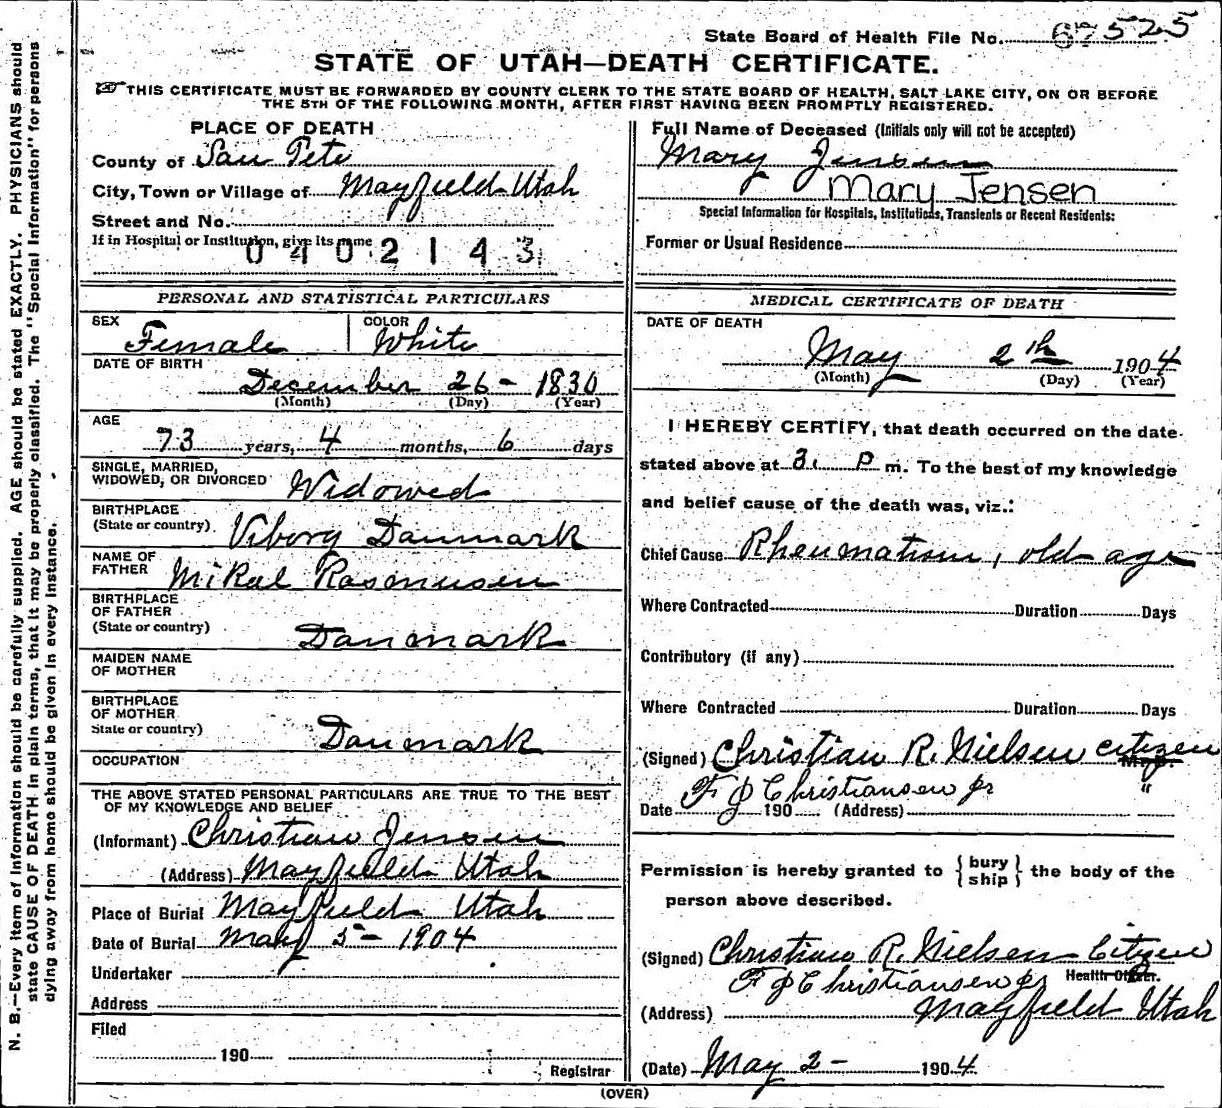 State Board of Health File No. 525
STATE OF UTAH—DEATH CERTIFICATE.
THIS CERTIFICATE MUST BE FORWARDED BY COUNTY CLERK TO THE STATE BOARD OF HEALTH, SALT LAKE CITY, ON OR BEFORE
THE 5TH OF THE FOLLOWING MONTH, AFTER FIRST HAVING BEEN PROMPTLY REGISTERED.
PLACE OF DEATH
County of San Pete
City, Town or Village of Mayfield Utah
Street and No.
If in Hospital or Institution, give its name
0402143
Full Name of Deceased (Initials only will not be accepted)
Mary Jensen
Mary Jensen
Special Information for Hospitals, Institutions, Transients or Recent Residents:
Former or Usual Residence
PERSONAL AND STATISTICAL PARTICULARS
SEX Female COLOR White
DATE OF BIRTH
December 26 - 1830
(Month) (Day) (Year)
AGE
73 years, 4 months, 6 days
SINGLE, MARRIED,
WIDOWED, OR DIVORCED Widowed
BIRTHPLACE
(State or country) Viborg Danmark
NAME OF
FATHER Mikal Rasmusen
BIRTHPLACE
OF FATHER
(State or country) Danmark
MAIDEN NAME
OF MOTHER
BIRTHPLACE
OF MOTHER
State or country) Danmark
OCCUPATION
THE ABOVE STATED PERSONAL PARTICULARS ARE TRUE TO THE BEST
OF MY KNOWLEDGE AND BELIEF
(Informant) Christian Jensen
(Address) Mayfield Utah
Place of Burial Mayfield Utah
Date of Burial May 5 - 1904
Undertaker
Address
Filed
190
Registrar
MEDICAL CERTIFICATE OF DEATH
DATE OF DEATH
May 2th 1904
(Month) (Day) (Year)
I HEREBY CERTIFY, that death occurred on the date
stated above at 3. P m. To the best of my knowledge
and belief cause of the death was, viz.:
Chief Cause Rheumatism, old age
Where Contracted Duration Days
Contributory (if any)
Where Contracted Duration Days
(Signed) Christian R. Nielsen citizen M. D.
F J Christiansen jr "
Date 190 (Address)
Permission is hereby granted to { bury ship } the body of the
person above described.
(Signed) Christian R. Nielsen Citizen
F J Christiansen jr Health Officer.
(Address) Mayfield Utah
(Date) May 2 - 1904
(OVER)
N. B.—Every item of information should be carefully supplied. AGE should be stated EXACTLY. PHYSICIANS should
state CAUSE OF DEATH in plain terms, that it may be properly classified. The "Special Information" for persons
dying away from home should be given in every instance.